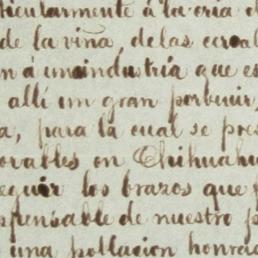 ticularmente á la cria d
de la viña, de las cereal
n á una industria que es
allí un gran porvenir,
a, para la cual se pres
orables en Chihuahu
eguir los brazos que
spensable de nuestro p
una poblacion honrad